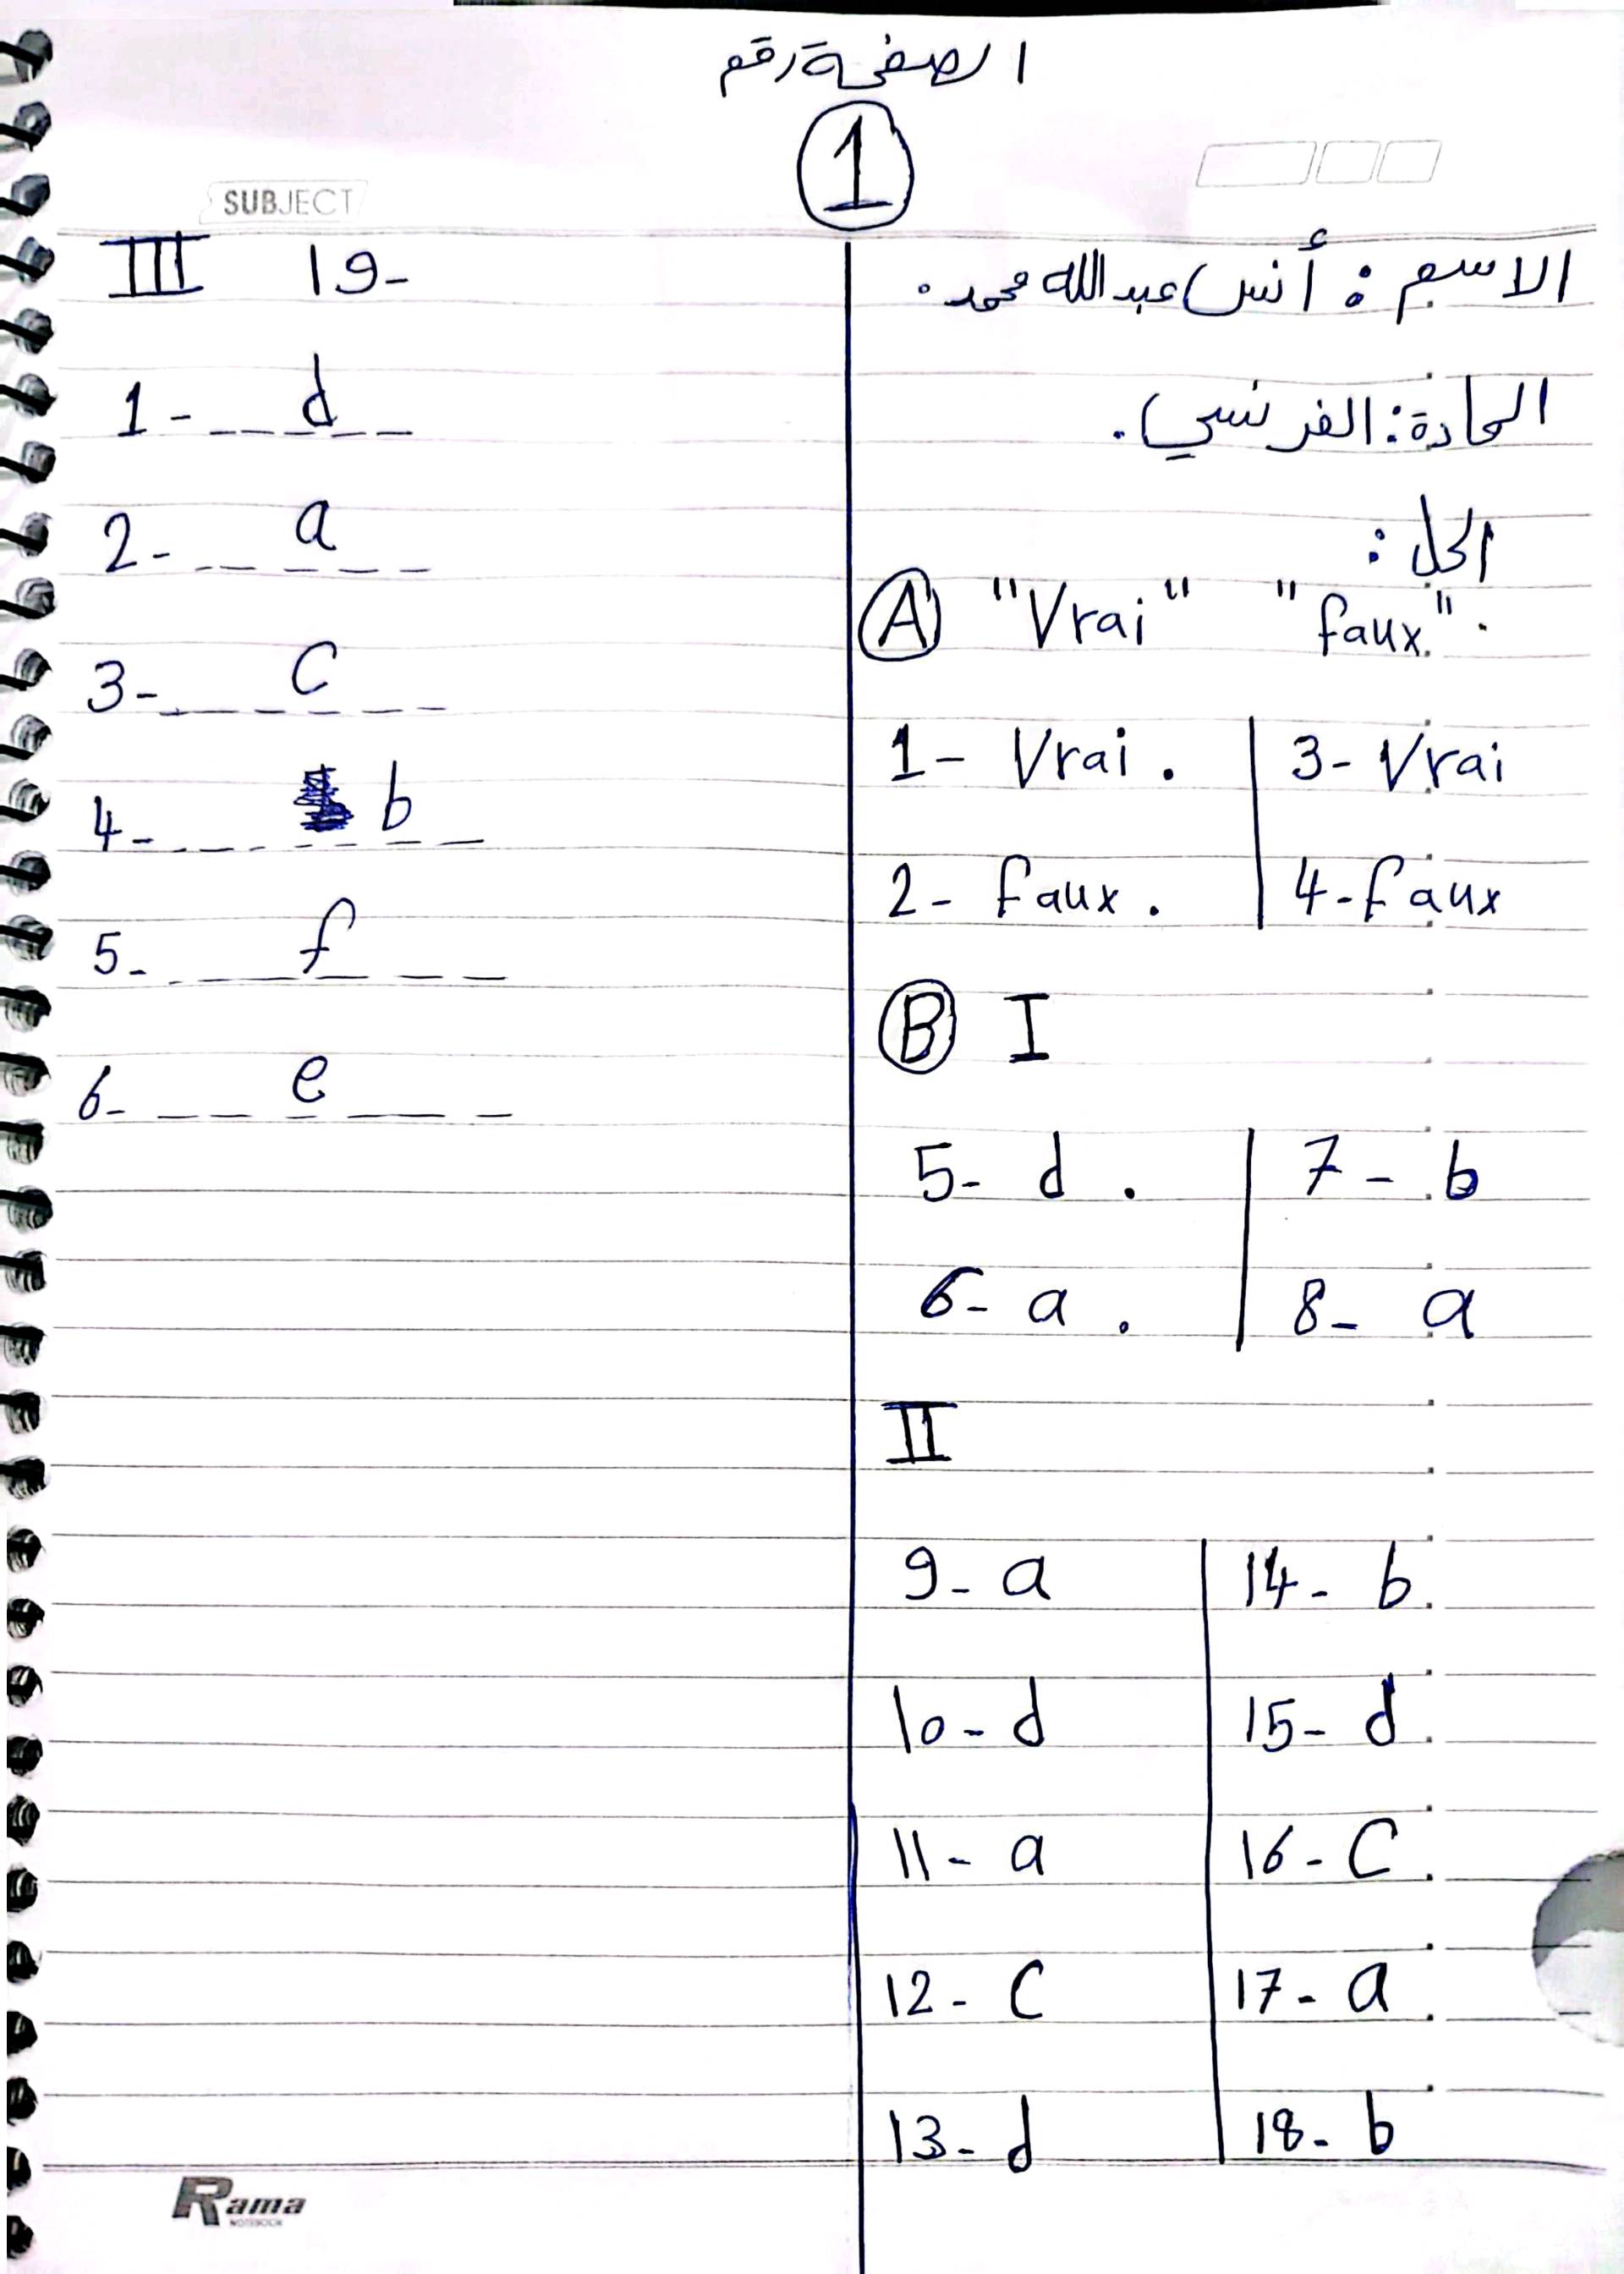 الصفحة رقم
1
SUBJECT
الاسم : أنس عبد الله محمد .
المادة : الفرنسي .
الحل :
A "Vrai" "faux" .
1- Vrai .
2- faux .
3- Vrai
4- faux
B I
5- d .
6- a .
7- b
8- a
II
9- a
10- d
11- a
12- C
13- d
14- b
15- d
16- C
17- a
18- b
III 19-
1- d
2- a
3- C
4- b
5- f
6- e
Rama
NOTEBOOK